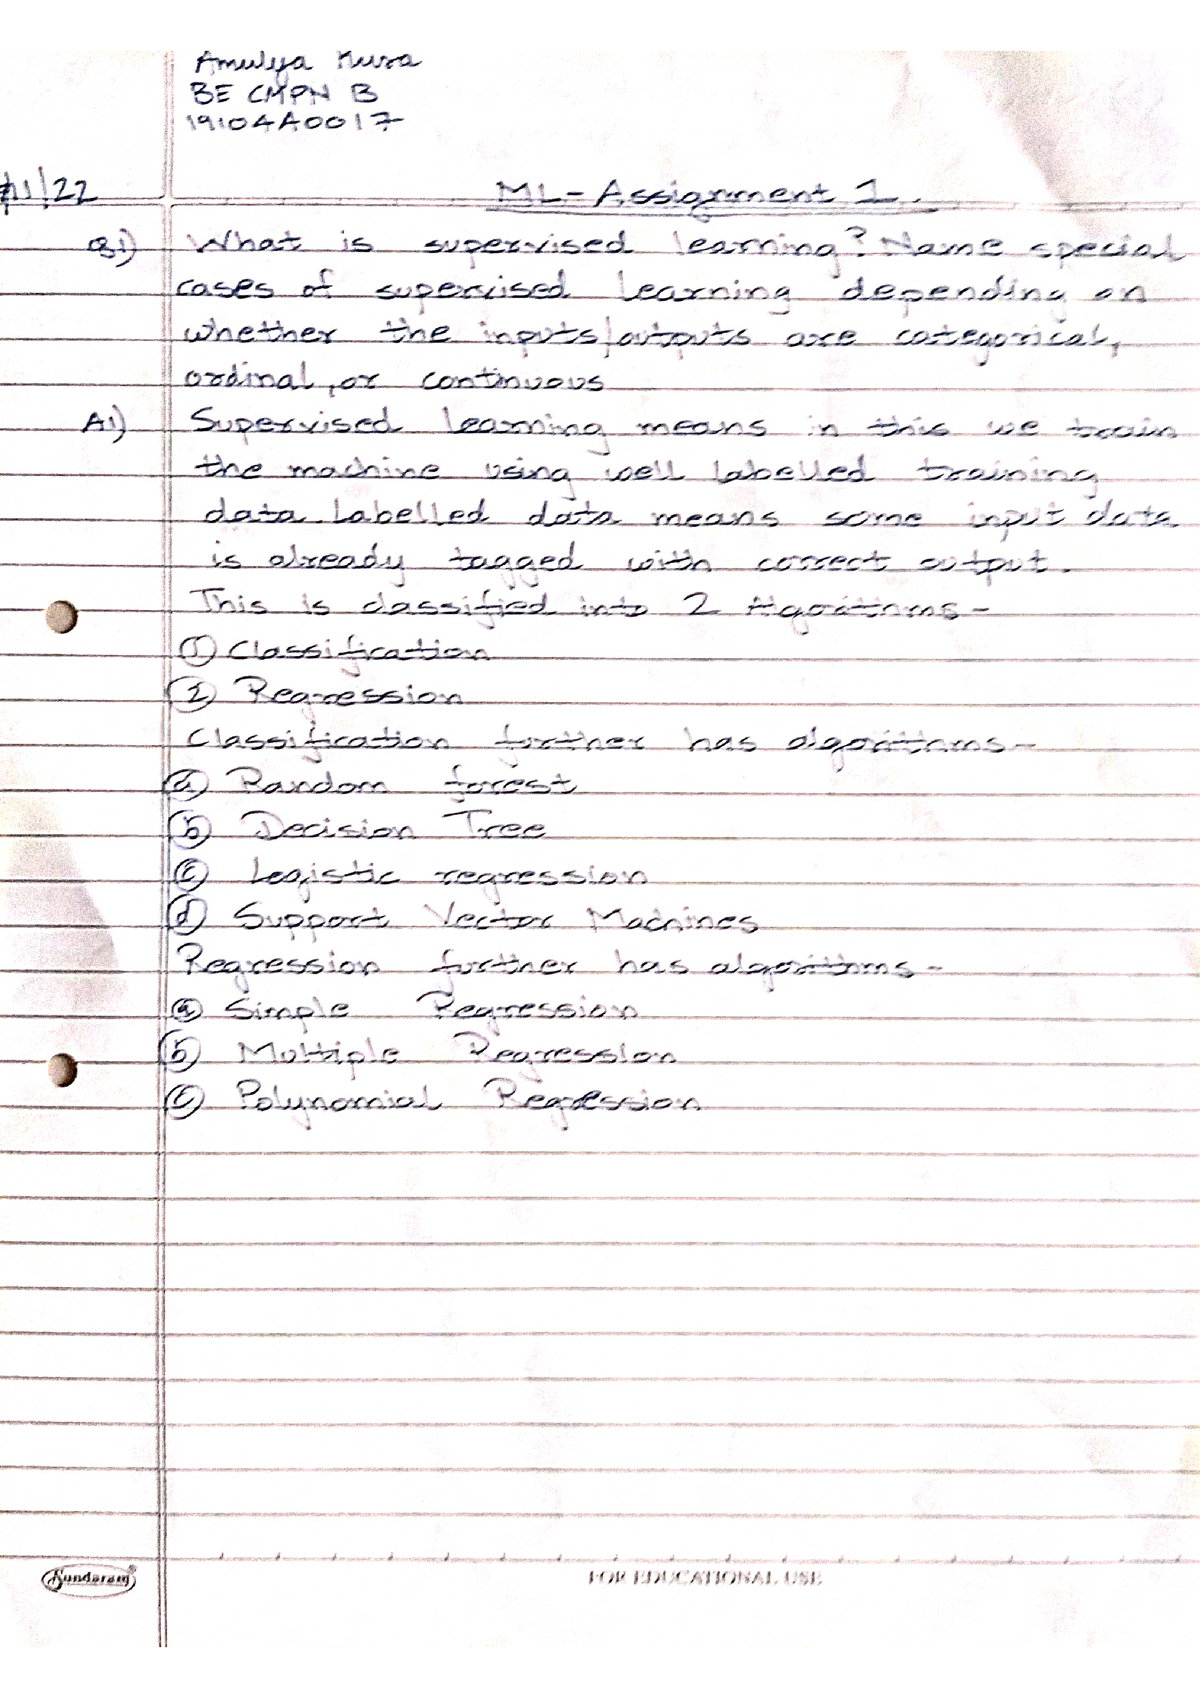 Amulya Kusa
BE CMPN B
19104A0017
11/22
ML - Assignment 1.
Q1) What is supervised learning? Name special
cases of supervised learning depending on
whether the inputs/outputs are categorical,
ordinal, or continuous
A1) Supervised learning means in this we train
the machine using well labelled training
data. Labelled data means some input data
is already tagged with correct output.
This is classified into 2 Algorithms -
① Classification
② Regression
Classification further has algorithms -
ⓐ Random forest
ⓑ Decision Tree
ⓒ Logistic regression
ⓓ Support Vector Machines
Regression further has algorithms -
ⓐ Simple Regression
ⓑ Multiple Regression
ⓒ Polynomial Regression
Sundaram
FOR EDUCATIONAL USE